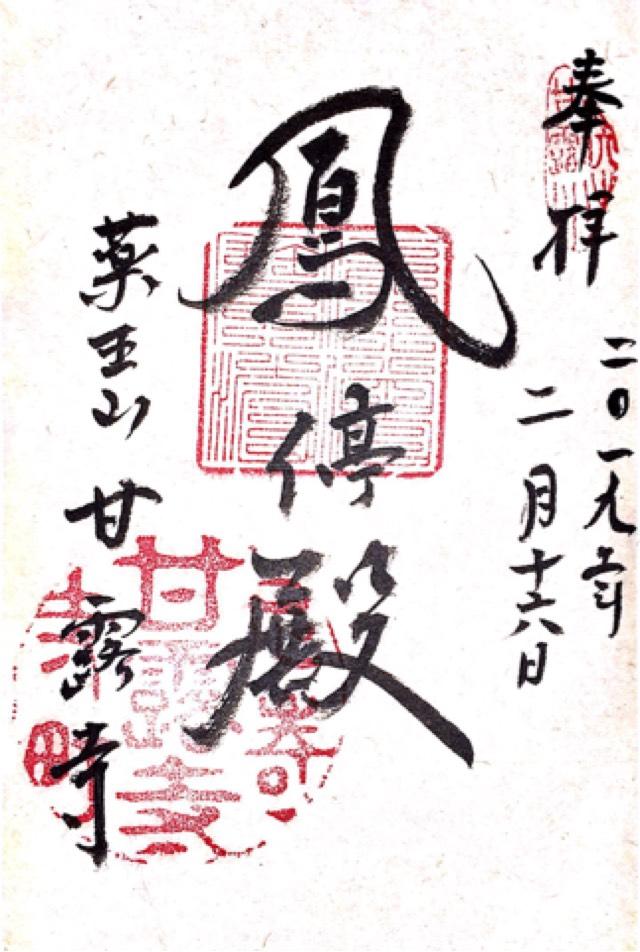 奉拝
二〇一九年
二月十六日
鳳停殿
薬王山 甘露寺